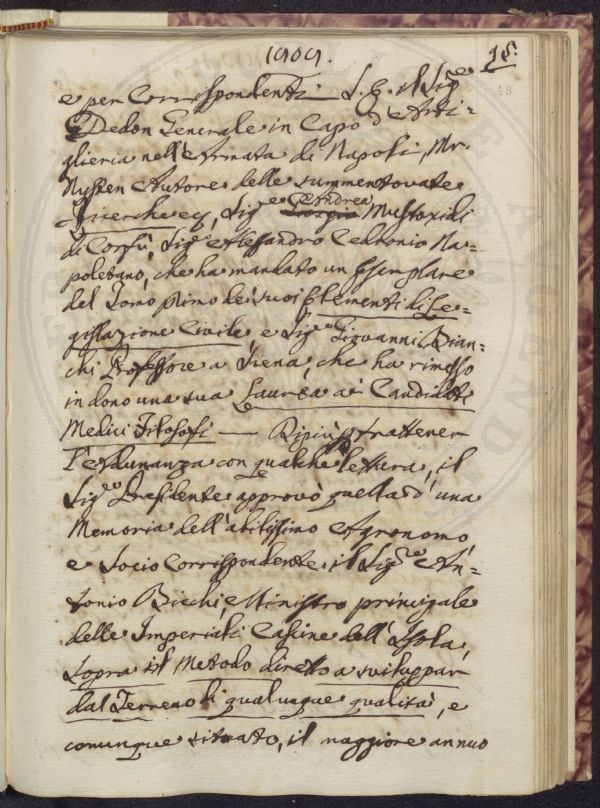 1809.
18.
e per Corrispondenti — S. E. il Sig.e
Dedon Generale in Capo d'Arti=
glieria nell'Armata di Napoli, Mr.
Nysten Autore delle summentovate
Ricerche ec, Sig.e Andrea Mustoxidi
di Corfù, Sig.e Alessandro Cedronio Na=
poletano, che ha mandato un Esemplare
del Tomo Primo de' suoi Elementi di Le=
gislazione Civile e Sig.e Giovanni Bian=
chi Professore a Siena, che ha rimesso
in dono una sua Laurea ai Candidati
Medici Filosofi — Di più p trattener
l'Adunanza con qualche lettura, il
Sig.e Presidente approvò quella d'una
Memoria dell'abilissimo Agronomo,
e Socio Corrispondente il Sig.re An=
tonio Bicchi, Ministro principale
delle Imperiali Cascine dell'Isola,
Sopra il Metodo diretto a sviluppar
dal Terreno di qualunque qualità, e
comunque situato, il maggiore annuo